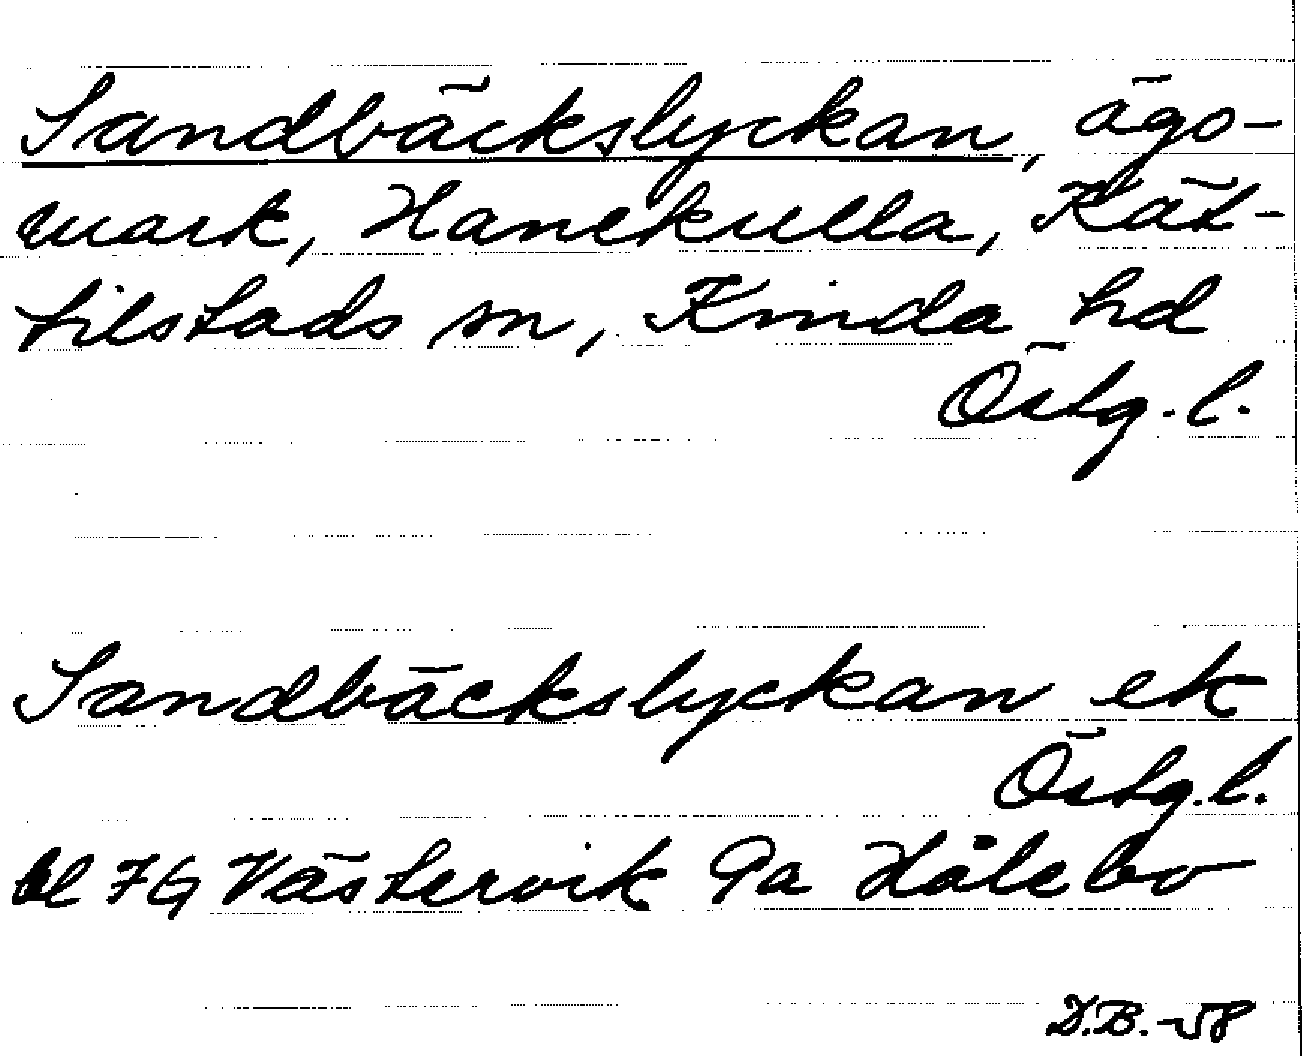 Sandbäckslyckan, ägo-
mark, Hanekulla, Kät-
tilstads sn, Kinda hd
Östg. l.
Sandbäckslyckan ek
Östg. l.
bl 7G Västervik 9a Hålebo
D.B. -58